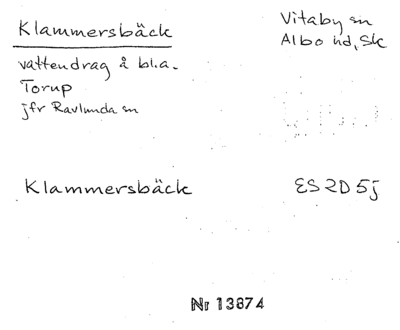 Klammersbäck
Vitaby sn
Albo hd, Sk
vattendrag å bl.a.
Torup
jfr Ravlunda sn
Klammersbäck
ES 2D 5j
Nr 13874